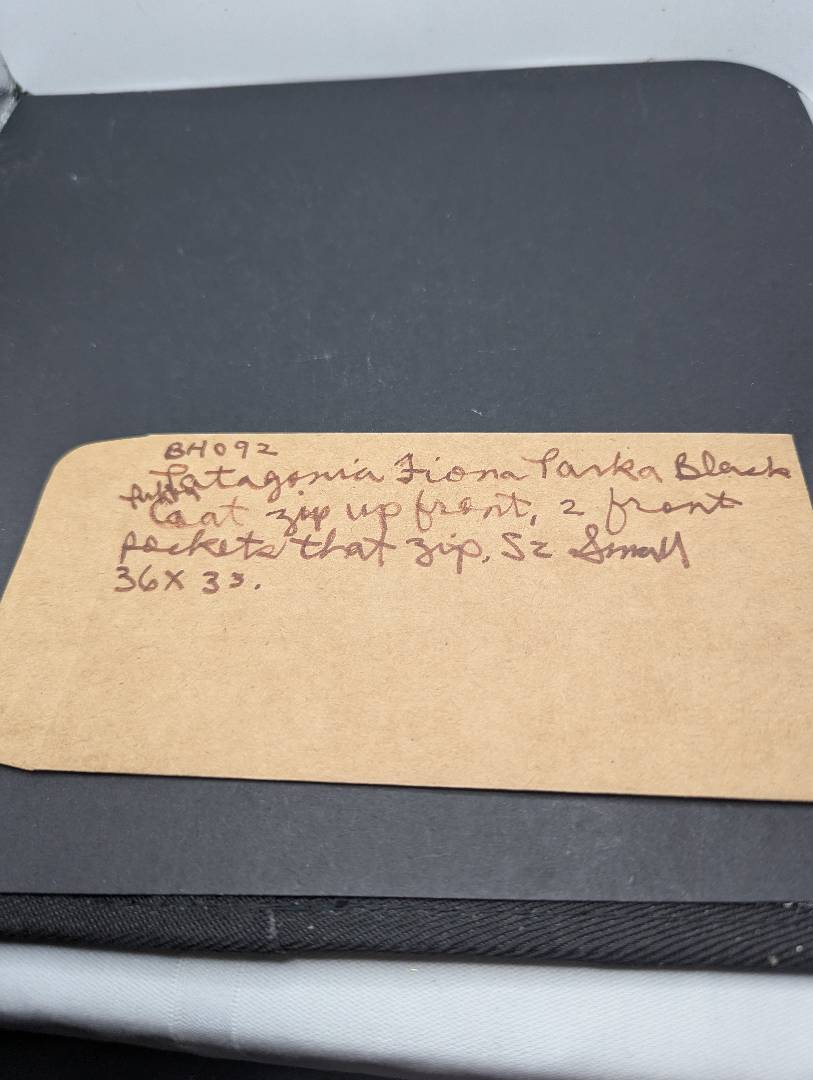 BH092
Patagonia Fiona Parka Black
Coat zip up front, 2 front
pockets that zip, Sz Small
36X33.